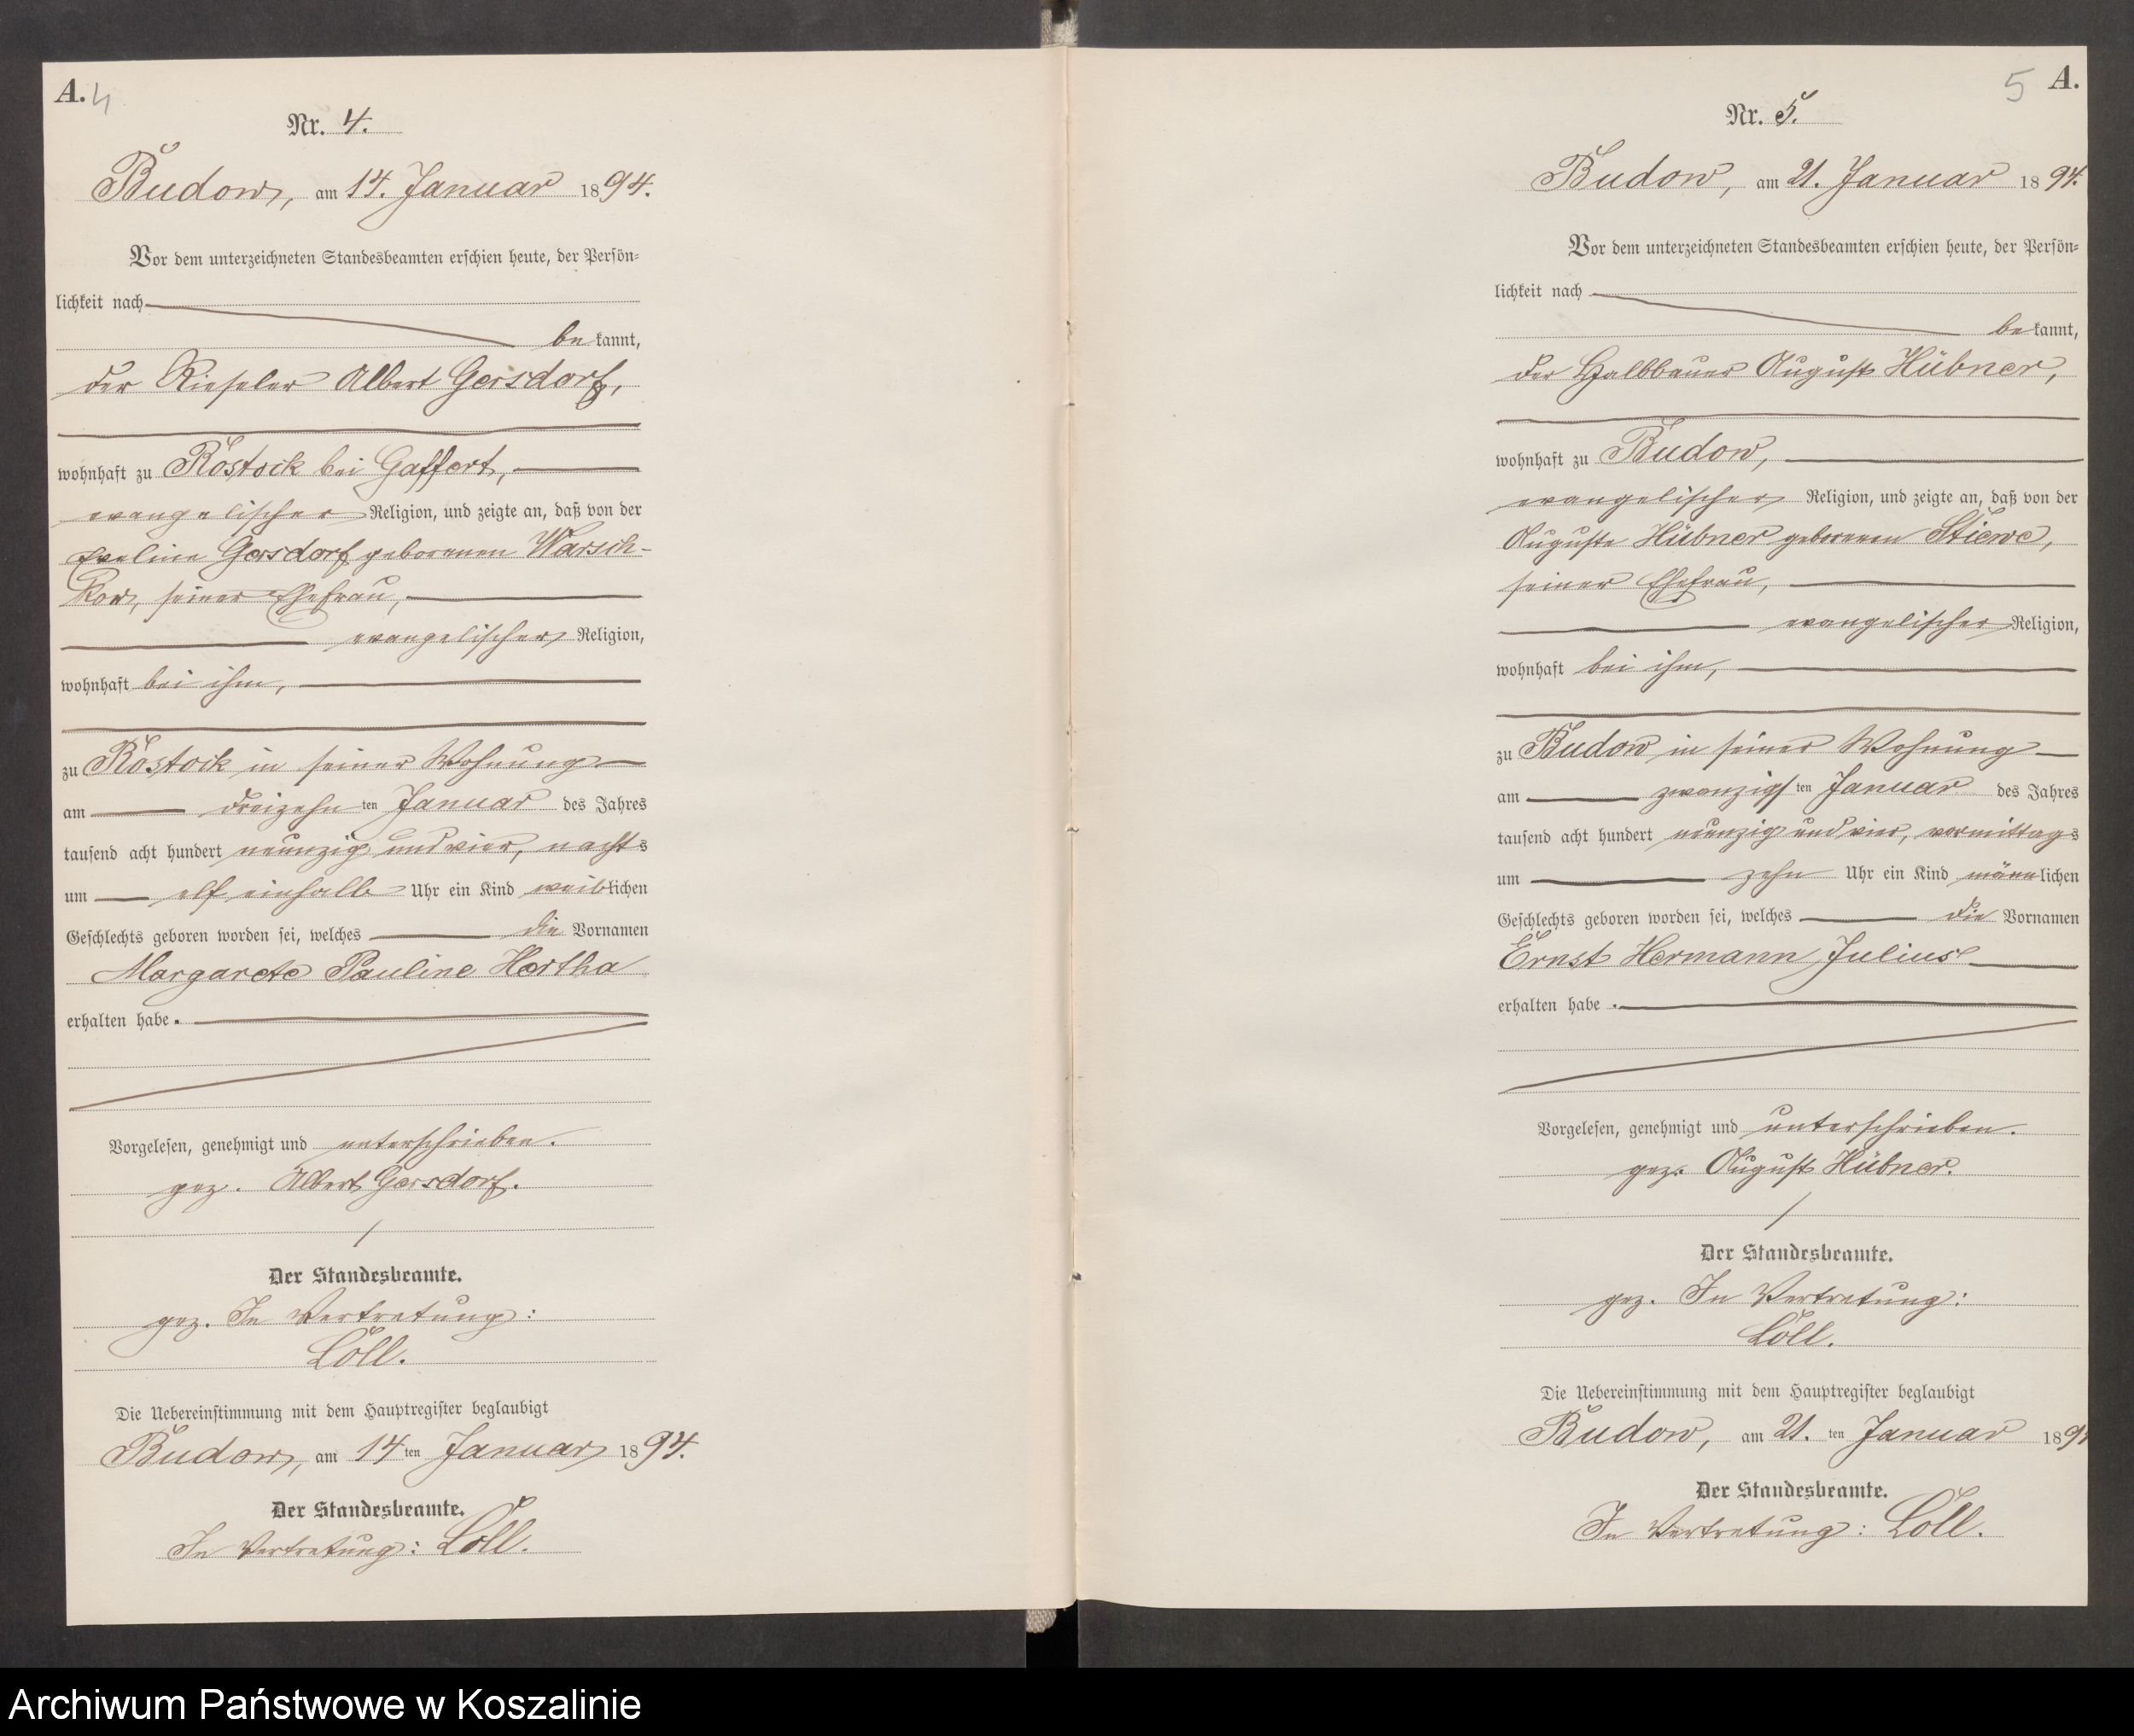 A. 4
Nr. 4.
Budow, am 14. Januar 1894.
Vor dem unterzeichneten Standesbeamten erschien heute, der Persön-
lichkeit nach
bekannt,
der Rieseler Albert Gersdorf,
wohnhaft zu Rostock bei Gaffert,
evangelischer Religion, und zeigte an, daß von der
Eveline Gersdorf geborenen Warsch-
kow, seiner Ehefrau,
evangelischer Religion,
wohnhaft bei ihm,
zu Rostock in seiner Wohnung
am dreizehnten Januar des Jahres
tausend acht hundert neunzig und vier, nachts
um elf einhalb Uhr ein Kind weiblichen
Geschlechts geboren worden sei, welches die Vornamen
Margarete Pauline Hertha
erhalten habe.
Vorgelesen, genehmigt und unterschrieben.
gez. Albert Gersdorf.
Der Standesbeamte.
gez. In Vertretung:
Löll.
Die Uebereinstimmung mit dem Hauptregister beglaubigt
Budow, am 14ten Januar 1894.
Der Standesbeamte.
In Vertretung: Löll.
5 A.
Nr. 5.
Budow, am 21. Januar 1894.
Vor dem unterzeichneten Standesbeamten erschien heute, der Persön-
lichkeit nach
bekannt,
der Halbbauer August Hübner,
wohnhaft zu Budow,
evangelischer Religion, und zeigte an, daß von der
Auguste Hübner geborenen Stiewe,
seiner Ehefrau,
evangelischer Religion,
wohnhaft bei ihm,
zu Budow in seiner Wohnung
am zwanzigsten Januar des Jahres
tausend acht hundert neunzig und vier, vormittags
um zehn Uhr ein Kind männlichen
Geschlechts geboren worden sei, welches die Vornamen
Ernst Hermann Julius
erhalten habe.
Vorgelesen, genehmigt und unterschrieben.
gez. August Hübner.
Der Standesbeamte.
gez. In Vertretung:
Löll.
Die Uebereinstimmung mit dem Hauptregister beglaubigt
Budow, am 21. ten Januar 189
Der Standesbeamte.
In Vertretung: Löll.
Archiwum Państwowe w Koszalinie